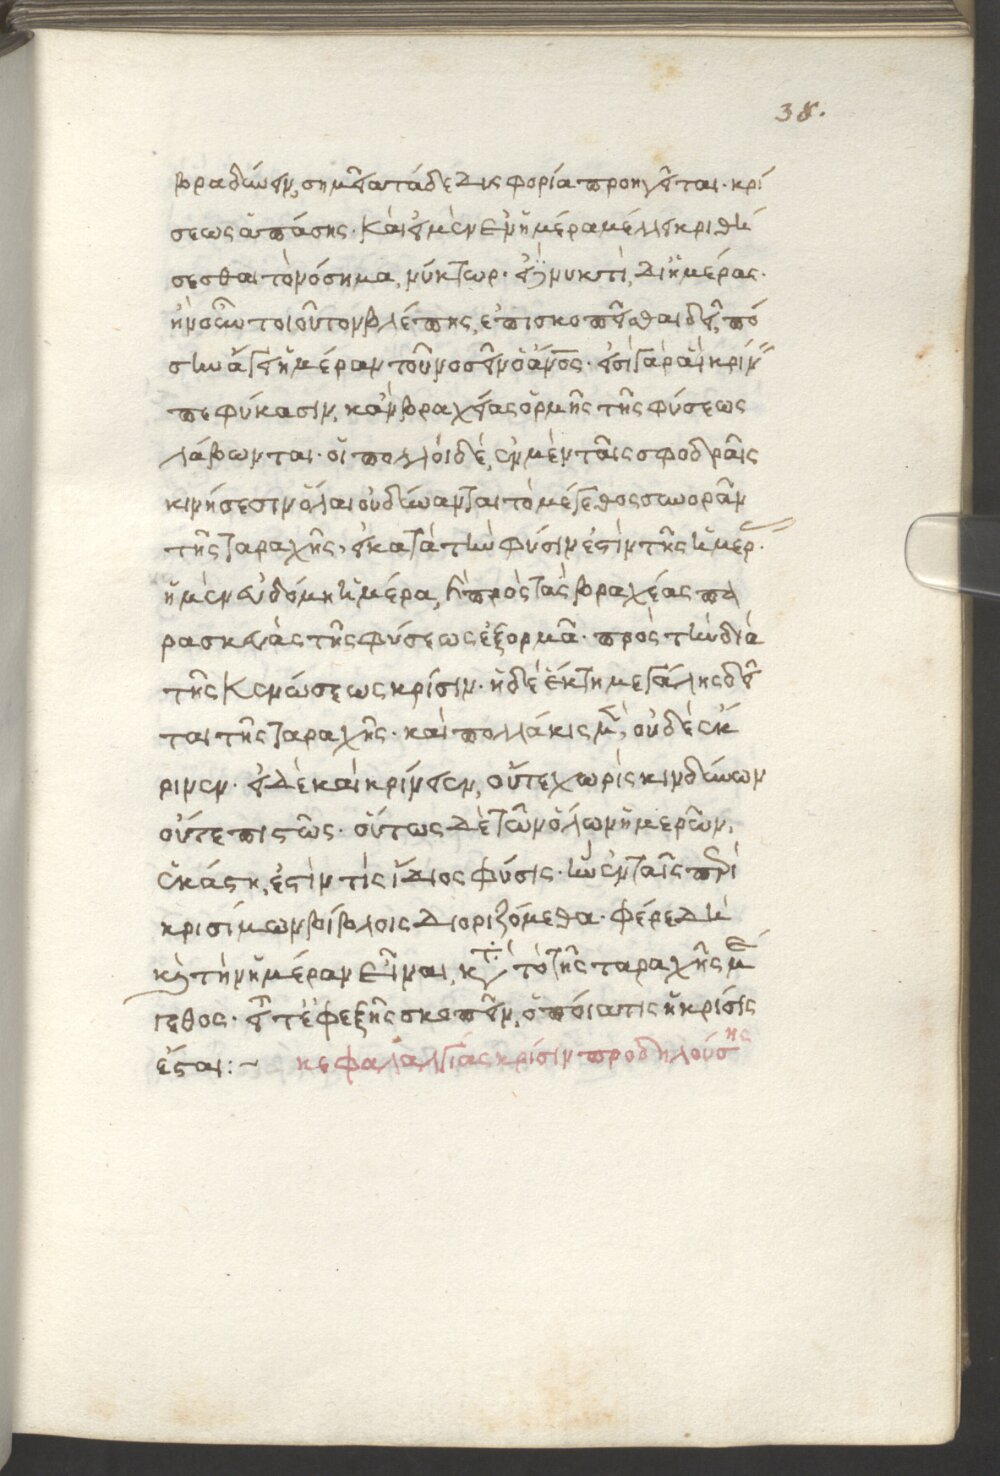 38.
βραδύνειν, σημεῖα τάδε· δυσφορία προηγεῖται· κρί
σεως ἁπάσης. Καὶ εἰ μὲν ἐν ἡμέρα μέλλει κριθή
σεσθαι τὸ νόσημα, νύκτωρ· εἰ δ' ἐν νυκτὶ, δι' ἡμέρας.
ἢν οὖν τοιοῦτον βλέπης, ἐπισκοπεῖσθαι δεῖ, πό
στην ἄγει ἡμέραν τοῦ νοσεῖν ὁ ἄνος. εἰσὶ γὰρ αἳ κρίν
πεφύκασιν, κἂν βραχείας ὁρμῆς τῆς φύσεως
λάβωνται. οἱ πολλοὶ δὲ, ἐν μὲν ταῖς σφοδραῖς
κινήσεσιν ὅλαι οὐ δύανται τὸ μέγεθος συνορᾶν
τῆς ταραχῆς, εἰ κατὰ τὴν φύσιν ἐστὶν τῆς ἡμερ.
ἡ μὲν ἑβδόμη ἡμέρα, ἢ πρὸς τὰς βραχέας πα
ρασκευὰς τῆς φύσεως ἐξορμᾶ. πρὸς τὴν διὰ
τῆς κενώσεως κρίσιν. ἡ δὲ ἕκτη μεγάλης δεῖ
ται τῆς ταραχῆς. καὶ πολλάκις μὲν, οὐδὲ ἔκ
ρινεν. εἰ δὲ καὶ κρίνειεν, οὔτε χωρὶς κινδύνων
οὔτε πιστῶς. οὕτως δὲ τῶν ὅλων ἡμερῶν,
ἑκάστη, ἐστὶν τίς ἴδιος φύσις. ἣν ἐν ταῖς περὶ
κρισίμων βίβλοις διοριζόμεθα. φέρε δὴ
καὶ τὴν ἡμέραν εἶναι, κ τὸ τῆς ταραχῆς μέ
γεθος. εἶτ' ἐφεξῆς σκοπεῖν, ὁποία τις ἡ κρίσις
ἔσται:– κεφαλαλγίας κρίσιν προδηλούσης